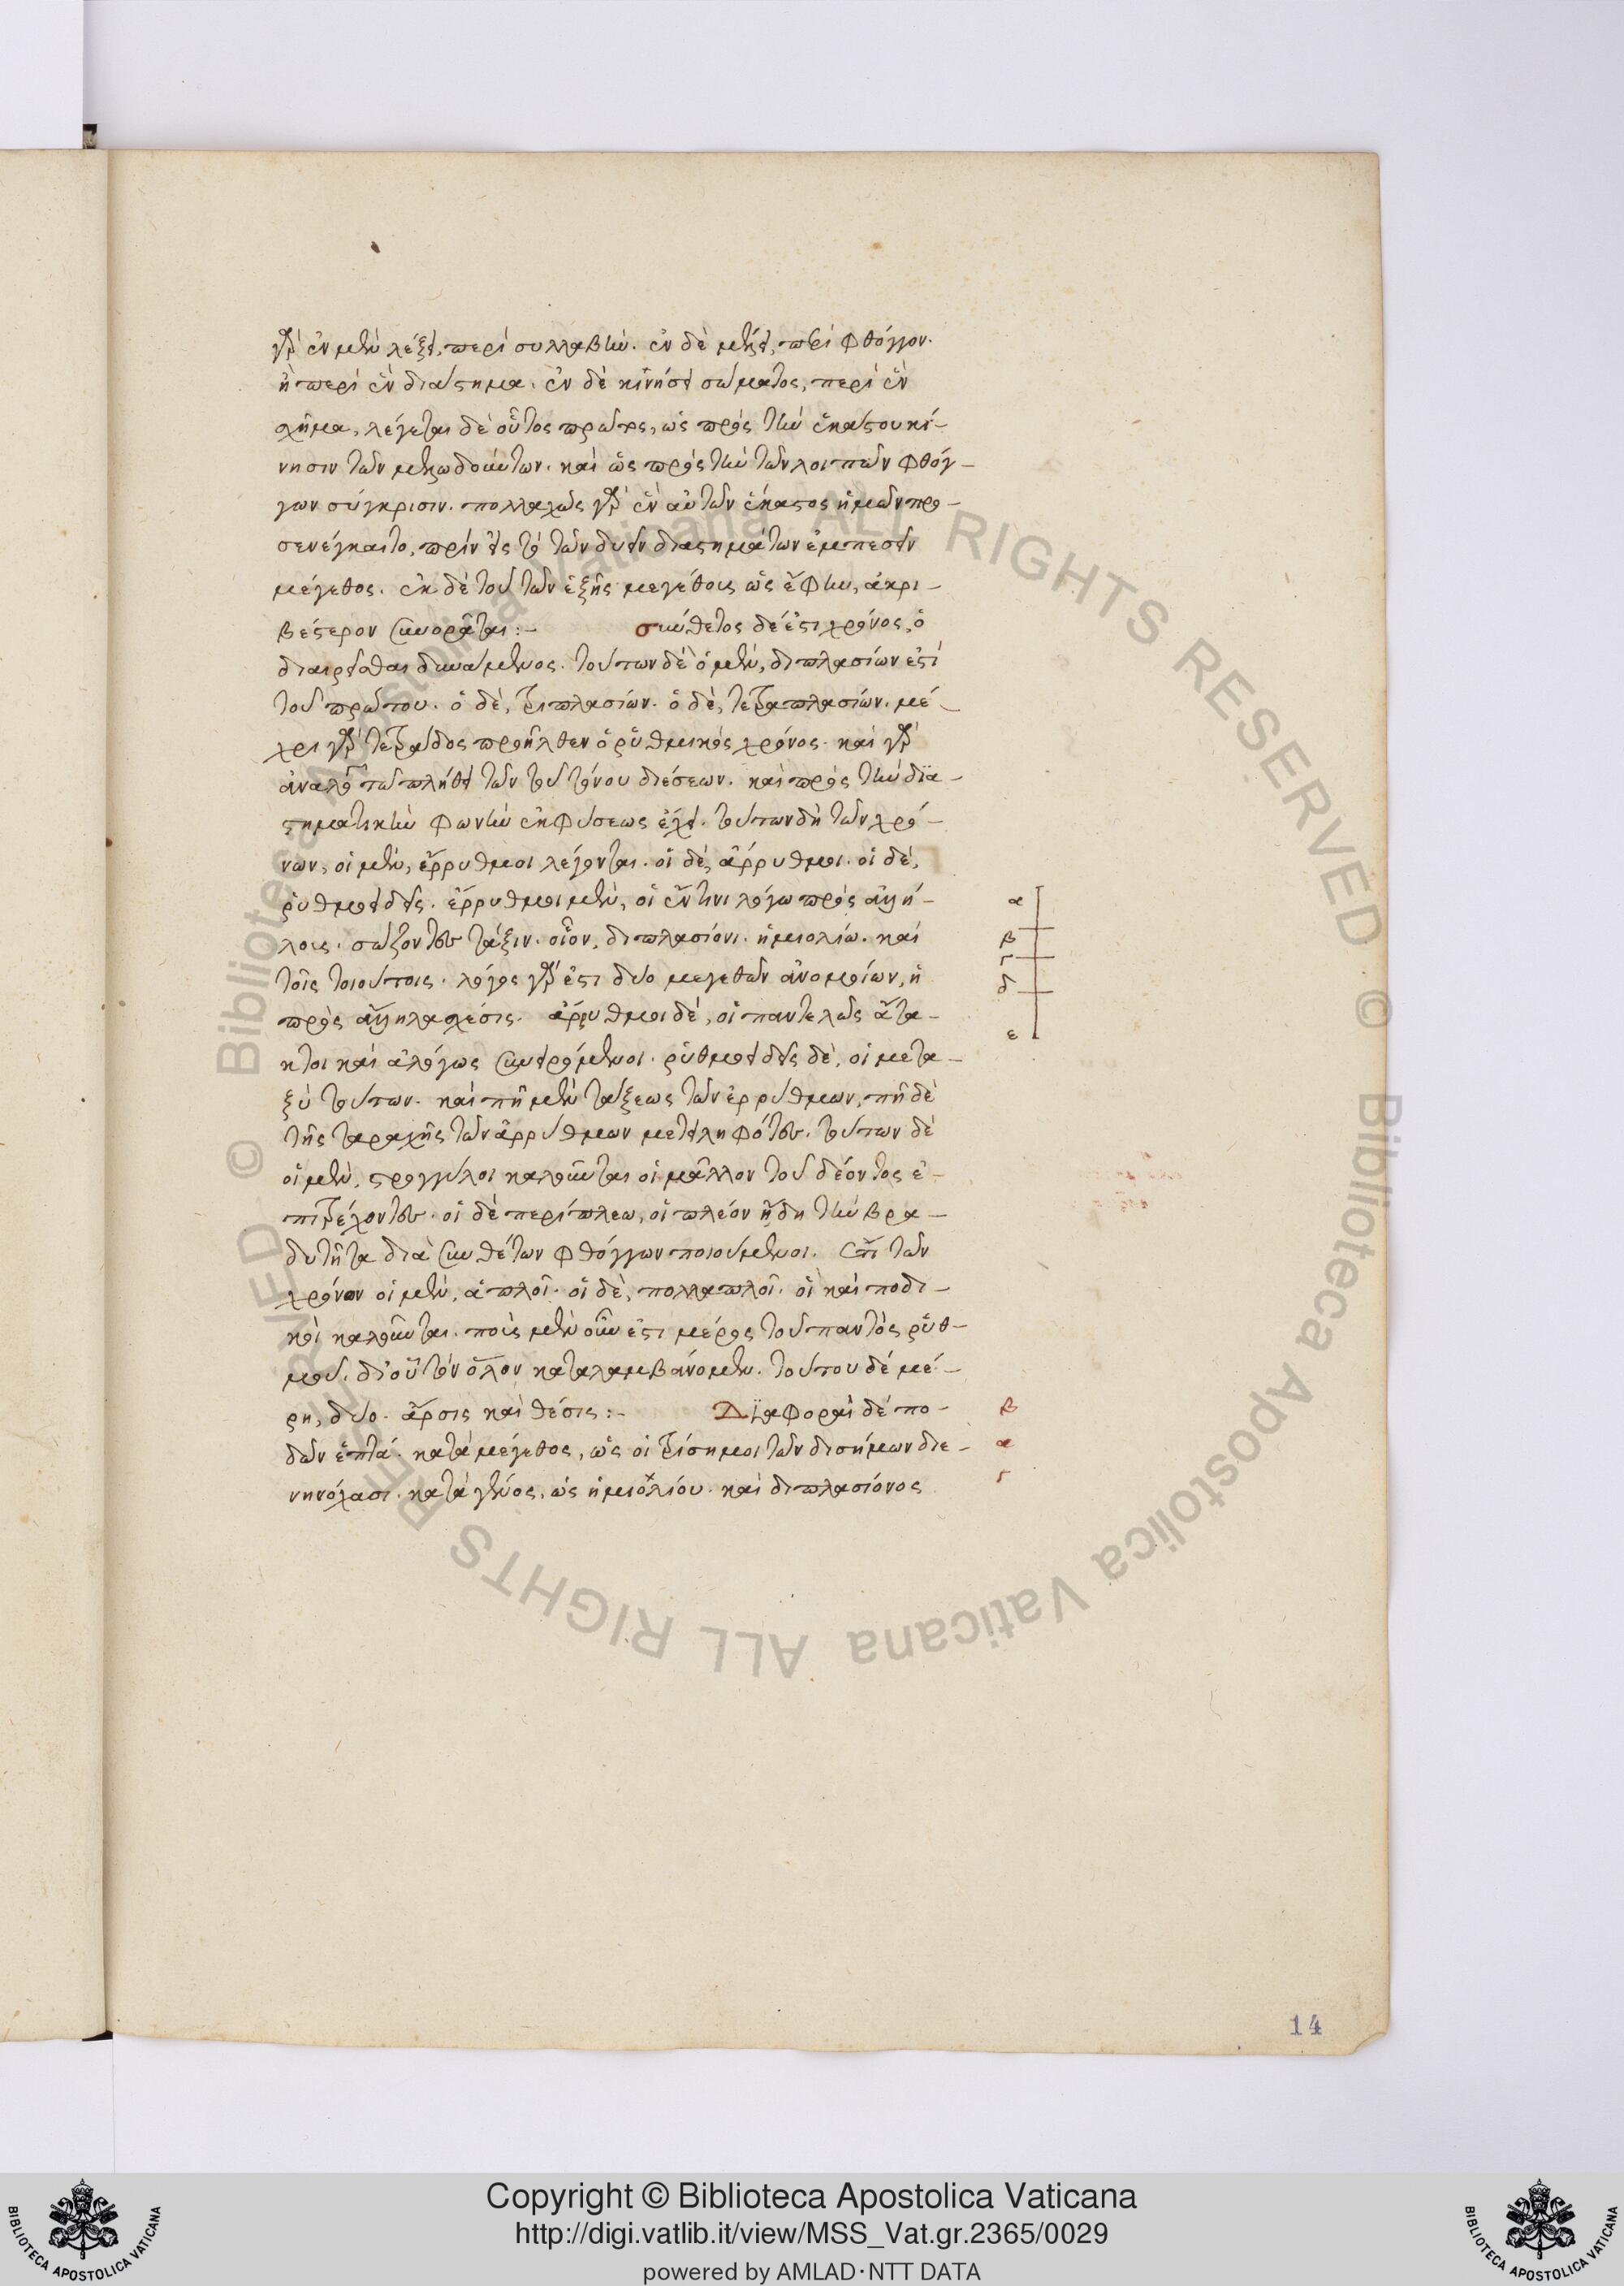 γὰρ ἐν μὲν λέξει, περὶ συλλαβήν. ἐν δὲ μέλει, περὶ φθόγγον.
ἢ περὶ ἓν διάστημα. ἐν δὲ κινήσει σώματος, περὶ ἓν
σχῆμα, λέγεται δὲ οὗτος πρῶτος, ὡς πρὸς τὴν ἑκάστου κί-
νησιν τῶν μελῳδούντων. καὶ ὡς πρὸς τὴν τῶν λοιπῶν φθόγ-
γων σύγκρισιν. πολλαχῶς γὰρ ἓν αὐτῶν ἕκαστος ἡμῶν προ-
σενέγκαιτο, πρὶν εἰς τὸ τῶν δυεῖν διαστημάτων ἐμπεσεῖν
μέγεθος. ἐκ δὲ τοῦ τῶν ἑξῆς μεγέθους ὡς ἔφην, ἀκρι-
βέστερον συνορᾶται :- σύνθετος δέ ἐστι χρόνος, ὁ
διαιρεῖσθαι δυνάμενος. τούτων δὲ ὁ μὲν, διπλασίων ἐστὶ
τοῦ πρώτου. ὁ δὲ, τριπλασίων. ὁ δὲ, τετραπλασίων. μέ-
χρι γὰρ τετράδος προῆλθεν ὁ ῥυθμικὸς χρόνος. καὶ γὰρ
ἀναλογεῖ τῷ πλήθει τῶν τοῦ τόνου διέσεων. καὶ πρὸς τὴν δια-
στηματικὴν φωνὴν ἐκ φύσεως ἔχει. τούτων δὴ τῶν χρό-
νων, οἱ μὲν, ἔρρυθμοι λέγονται. οἱ δὲ, ἄρρυθμοι. οἱ δὲ,
ῥυθμοειδεῖς. ἔρρυθμοι μὲν, οἱ ἔν τινι λόγω πρὸς ἀλλή-
λους. σώζοντες τάξιν. οἷον, διπλασίονι. ἡμιολίω. καὶ
τοῖς τοιούτοις. λόγος γάρ ἐστι δύο μεγεθῶν ἀνομοίων, ἡ
πρὸς ἄλληλα σχέσις. ἄρρυθμοι δὲ, οἱ παντελῶς ἄτα-
κτοι καὶ ἀλόγως συνειρόμενοι. ῥυθμοειδεῖς δὲ, οἱ μετα-
ξὺ τούτων. καὶ πῆ μὲν τάξεως τῶν ἐρρύθμων, πῆ δὲ
τῆς ταραχῆς τῶν ἀρρύθμων μετειληφότες. τούτων δὲ
οἱ μὲν, στρογγύλοι καλοῦνται οἱ μᾶλλον τοῦ δέοντος ἐ-
πιτρέχοντες. οἱ δὲ περίπλεω, οἱ πλέον ἤδη τὴν βρα-
δυτῆτα διὰ συνθέτων φθόγγων ποιούμενοι. ἔτι τῶν
χρόνων οἱ μὲν, ἁπλοῖ. οἱ δὲ, πολλαπλοῖ. οἳ καὶ ποδι-
κοὶ καλοῦνται. ποὺς μὲν οὖν ἐστι μέρος τοῦ παντὸς ῥυθ-
μοῦ. δι' οὗ τὸν ὅλον καταλαμβάνομεν. τούτου δὲ μέ-
ρη, δύο. ἄρσις καὶ θέσις :- Διαφοραὶ δὲ πο-
δῶν ἑπτά. κατὰ μέγεθος, ὡς οἱ τρίσημοι τῶν δισήμων διε-
νηνόχασι. κατὰ γένος, ὡς ἡμιόλιου. καὶ διπλασίονος
α
β
γ
δ
ε
β
α
γ
14
Copyright © Biblioteca Apostolica Vaticana
http://digi.vatlib.it/view/MSS_Vat.gr.2365/0029
powered by AMLAD·NTT DATA
BIBLIOTECA APOSTOLICA VATICANA
BIBLIOTECA APOSTOLICA VATICANA
© Biblioteca Apostolica Vaticana ALL RIGHTS RESERVED © Biblioteca Apostolica Vaticana ALL RIGHTS RESERVED